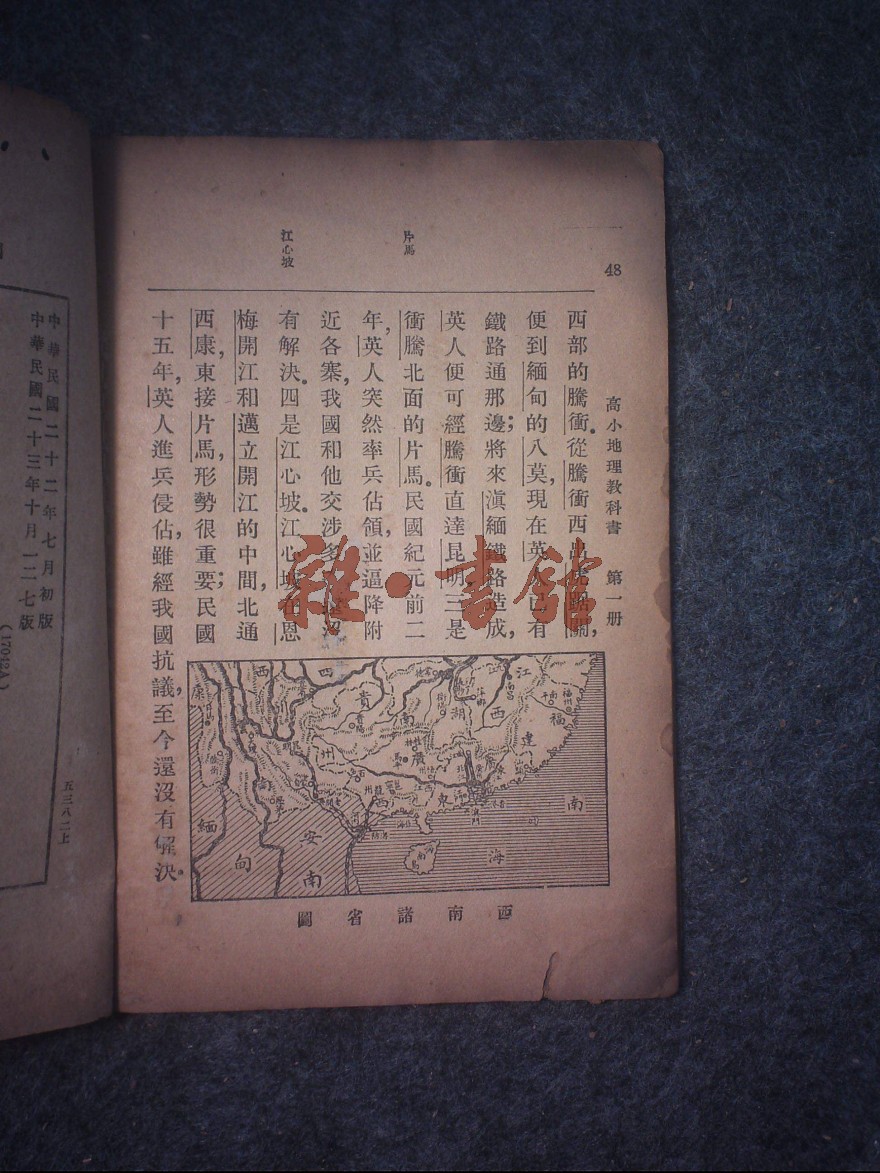 48
高小地理教科書　第一册
片馬
江心坡
西部的騰衝。從騰衝西出虎踞關，
便到緬甸的八莫，現在英人已有
鐵路通那邊；將來滇緬鐵路造成，
英人便可經騰衝直達昆明。三是
衝騰北面的片馬。民國紀元前二
年，英人突然率兵佔領，並逼降附
近各寨，我國和他交涉多
有解決。四是江心坡。江心坡在恩
梅開江和邁立開江的中間，北通
西康，東接片馬，形勢很重要；民國
十五年，英人進兵侵佔，雖經我國抗議，至今還沒有解決。
西南諸省圖
江
西
湖
南
貴
州
福
建
廣
東
西
康
緬
甸
安
南
南
海
南昌
福州
貴陽
中華民國二十二年七月初版
中華民國二十三年十月一二七版
(17042A)
五三八二上
雜·書館